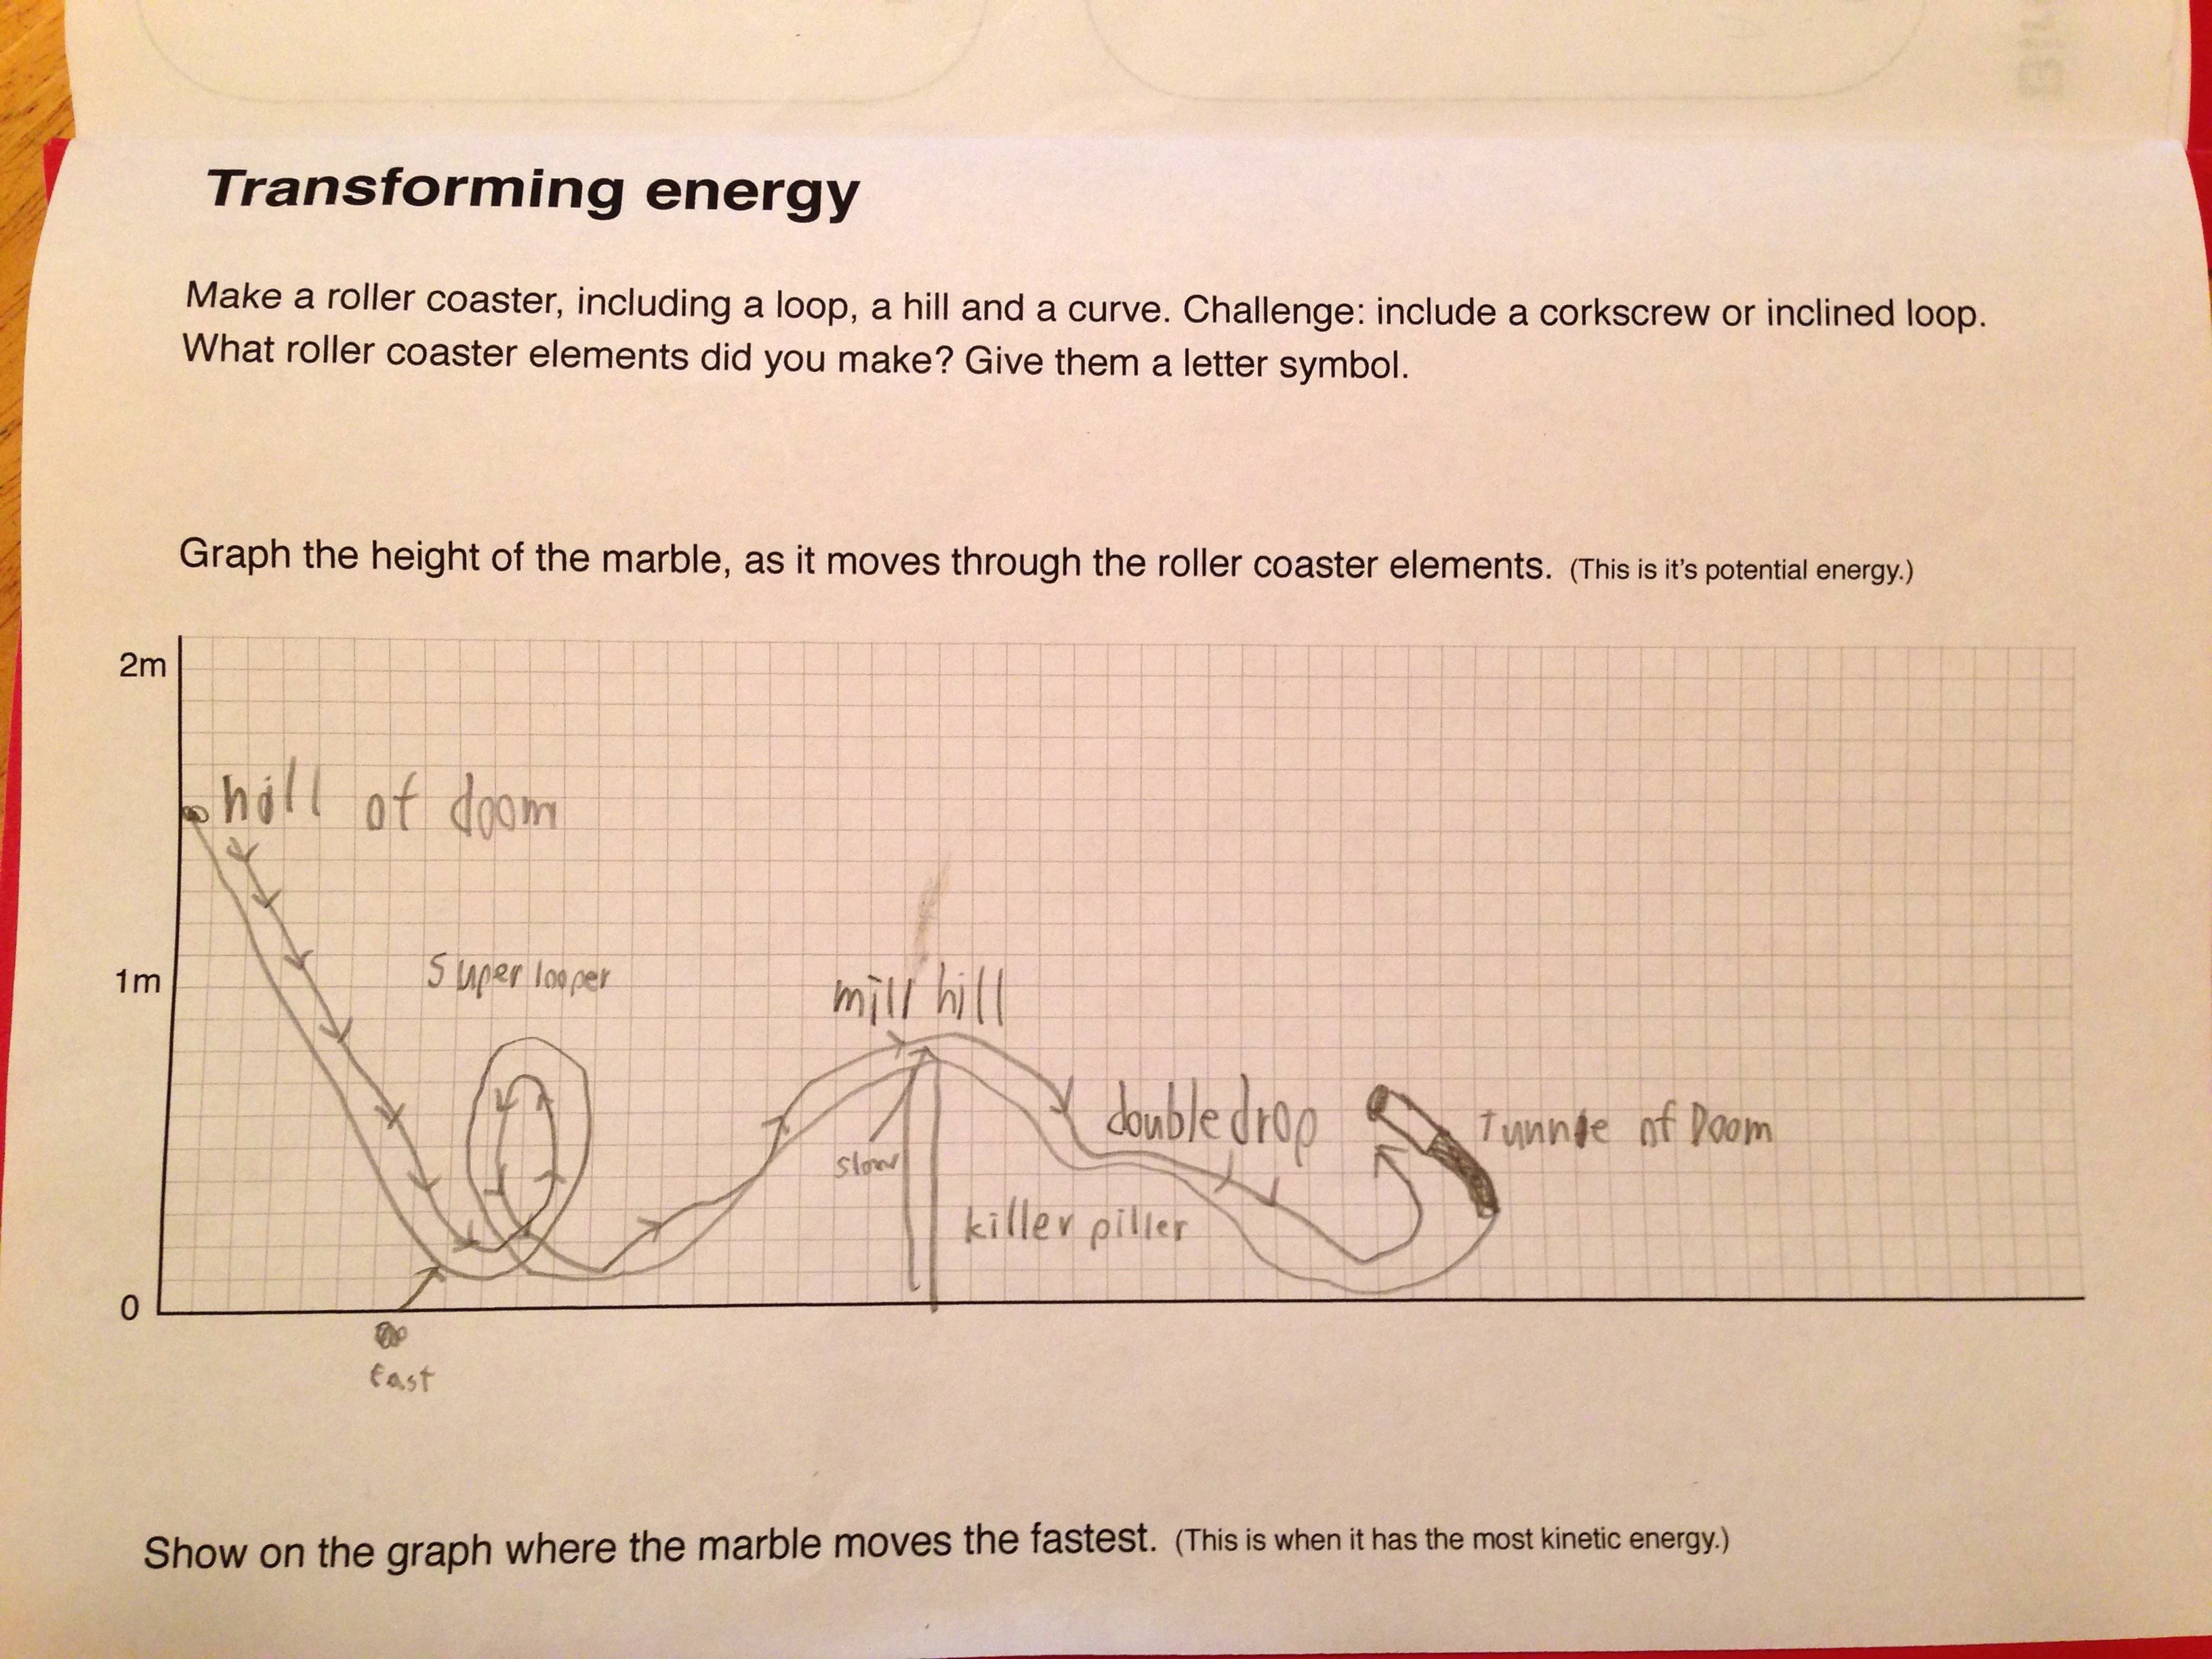 Transforming energy
Make a roller coaster, including a loop, a hill and a curve. Challenge: include a corkscrew or inclined loop.
What roller coaster elements did you make? Give them a letter symbol.
Graph the height of the marble, as it moves through the roller coaster elements. (This is it's potential energy.)
2m
hill of doom
1m
Super looper
mill hill
double drop
Tunnle of Doom
slow
killer piller
0
fast
Show on the graph where the marble moves the fastest. (This is when it has the most kinetic energy.)